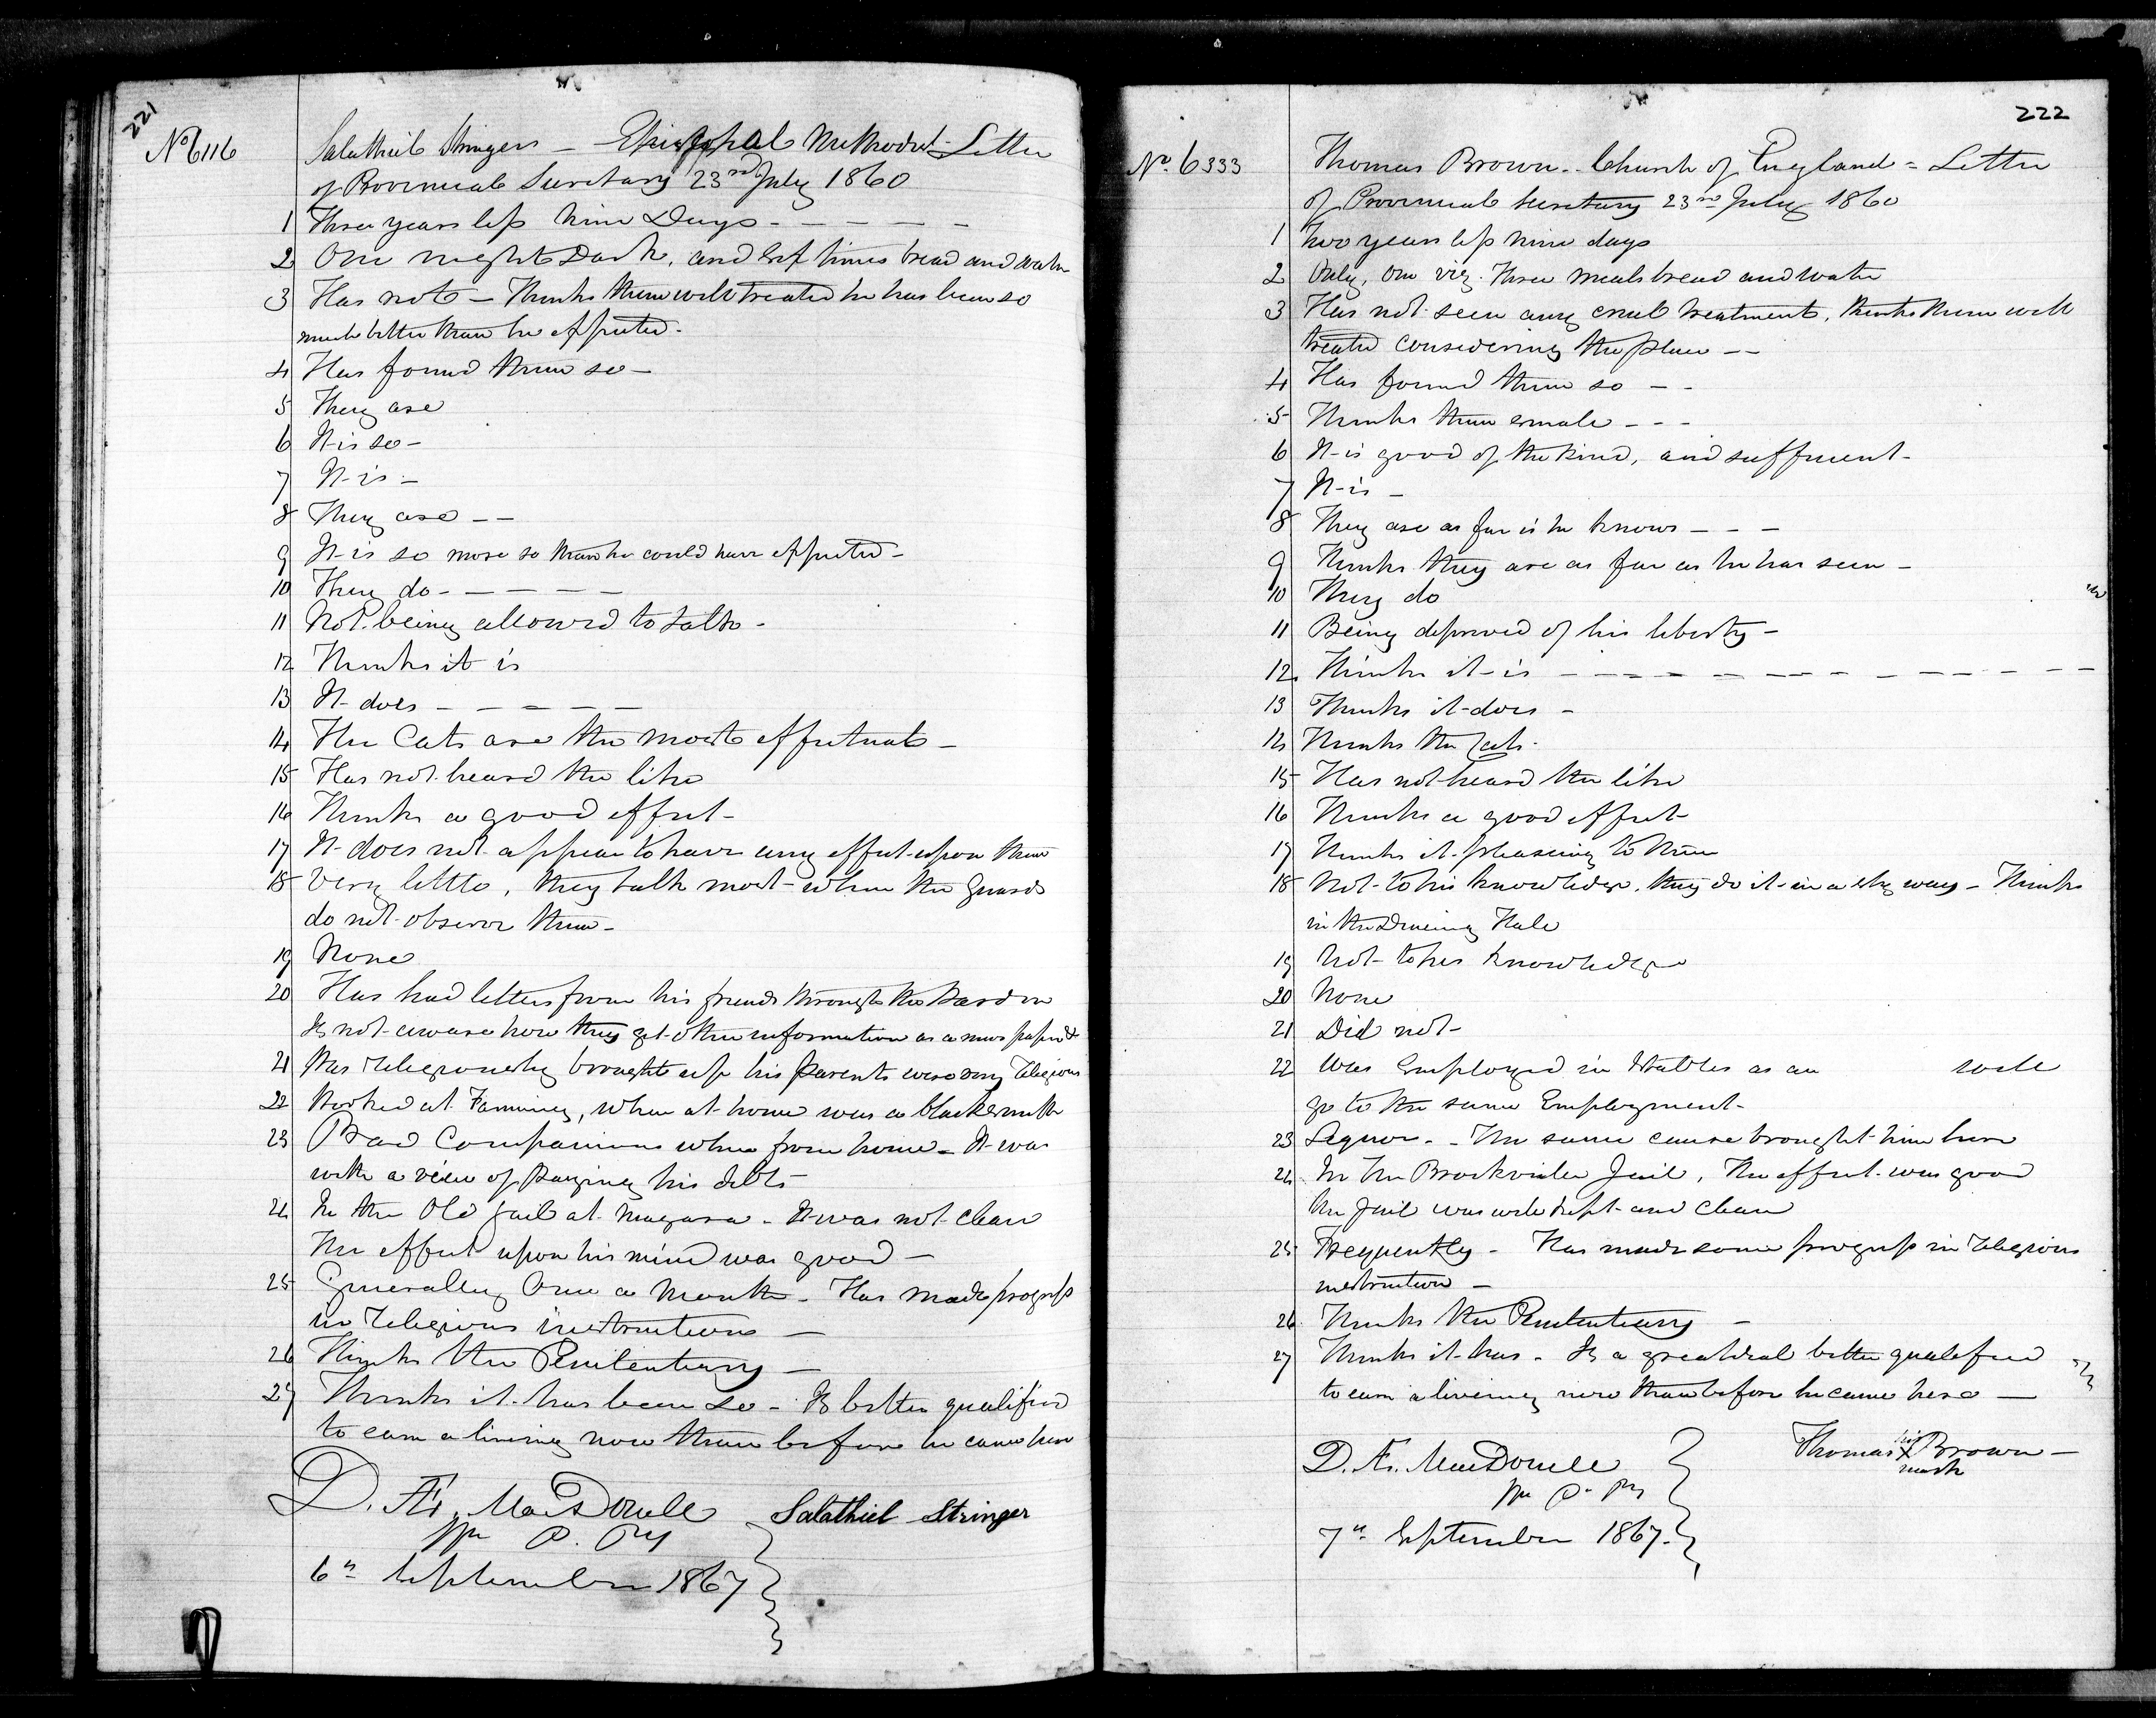 221
No 6116
Salathiel Stringer — Episcopal Methodist — Letter
of Provincial Secretary 23rd July 1860
1 Three years less nine Days - — — — —
2 One night Dark, and six times bread and water
3 Has not — Thinks them well treated he has been so
much better than he expected -
4 Has found them so —
5 They are
6 It is so —
7 It is —
8 They are — —
9 It is so more so than he could have expected —
10 They do - — — — — —
11 Not being allowed to talk -
12 Thinks it is
13 It does — — — — —
14 The Cats are the most effectual —
15 Has not heard the like
16 Thinks a good effect —
17 It does not appear to have any effect upon them
18 Very little, they talk most when the Guards
do not observe them —
19 None
20 Has had letters from his friends through the Warden
Is not aware how they get other information as a news paper &
21 Was Religiously brought up his Parents were very Religious
22 Worked at Farming, when at home was a blacksmith
23 Bad Companions when from home — It was
with a view of paying his debts
24 In the Old jail at Niagara — It was not clean
The effect upon his mind was good —
25 Generally Once a Month — Has made progress
in Religious instructions —
26 Thinks the Penitentiary —
27 Thinks it has been so — Is better qualified
to earn a living now than before he came here
D. Æ. MacDonell Salathiel Stringer
P. Py
6th September 1867
222
No. 6333
Thomas Brown - Church of England = Letter
of Provincial Secretary 23rd July 1860
1 Two years less nine days
2 Only, One viz. Three meals bread and water
3 Has not seen any cruel treatment, thinks them well
treated considering the place — —
4 Has found them so — -
5 Thinks them small - - -
6 It is good of the kind, and sufficient -
7 It is —
8 They are as far is he knows — — —
9 Thinks they are as far as he has seen —
10 They do
11 Being deprived of his liberty —
12 Thinks it is — — — — — — — — — — —
13 Thinks it does -
14 Thinks the Cats -
15 Has not heard the like
16 Thinks a good effect
17 Thinks it pleasing to them
18 Not to his knowledge, they do it in a sly way — Thinks
in the Dineing Hall
19 Not to his knowledge
20 None
21 Did not -
22 Was Employed in Stables as an
go to the same Employment -
23 Liquor - - The same cause brought him here
24 In the Brockville Jail, The effect was good
The Jail was well kept and clean
25 Frequently - Has made some progress in Religious
instruction —
26 Thinks the Penitentiary —
27 Thinks it has - Is a great deal better qualified
to earn a liveing now than before he came here —
D. Æ. MacDonell Thomas his X mark Brown —
P. Py
7th September 1867.